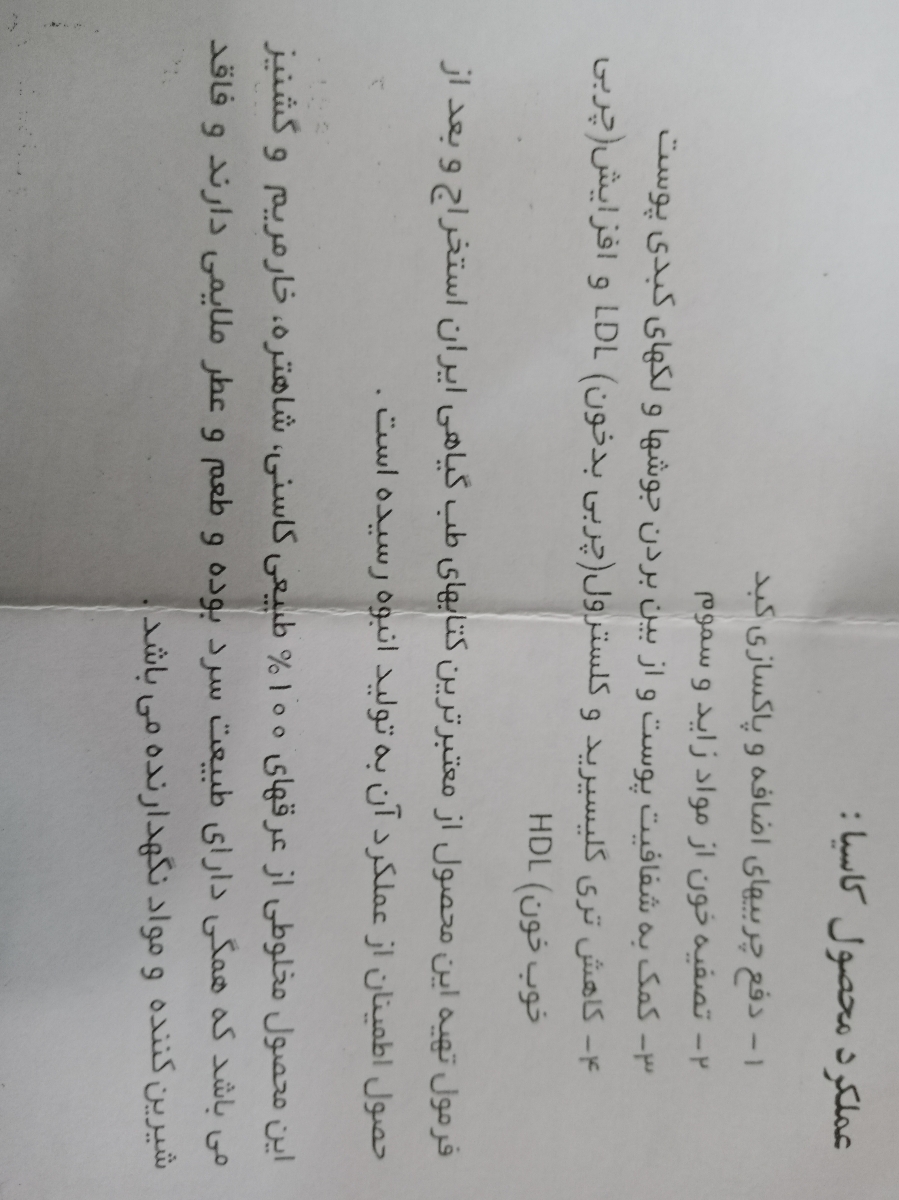 عملکرد محصول کاسیا :
۱- دفع چربیهای اضافه و پاکسازی کبد
۲- تصفیه خون از مواد زاید و سموم
۳- کمک به شفافیت پوست و از بین بردن جوشها و لکهای کبدی پوست
۴- کاهش تری گلیسیرید و کلسترول(چربی بدخون) LDL و افزایش(چربی
خوب خون) HDL
فرمول تهیه این محصول از معتبرترین کتابهای طب گیاهی ایران استخراج و بعد از
حصول اطمینان از عملکرد آن به تولید انبوه رسیده است .
این محصول مخلوطی از عرقهای ۱۰۰% طبیعی کاسنی، شاهتره، خارمریم و گشنیز
می باشد که همگی دارای طبیعت سرد بوده و طعم و عطر ملایمی دارند و فاقد
شیرین کننده و مواد نگهدارنده می باشد .